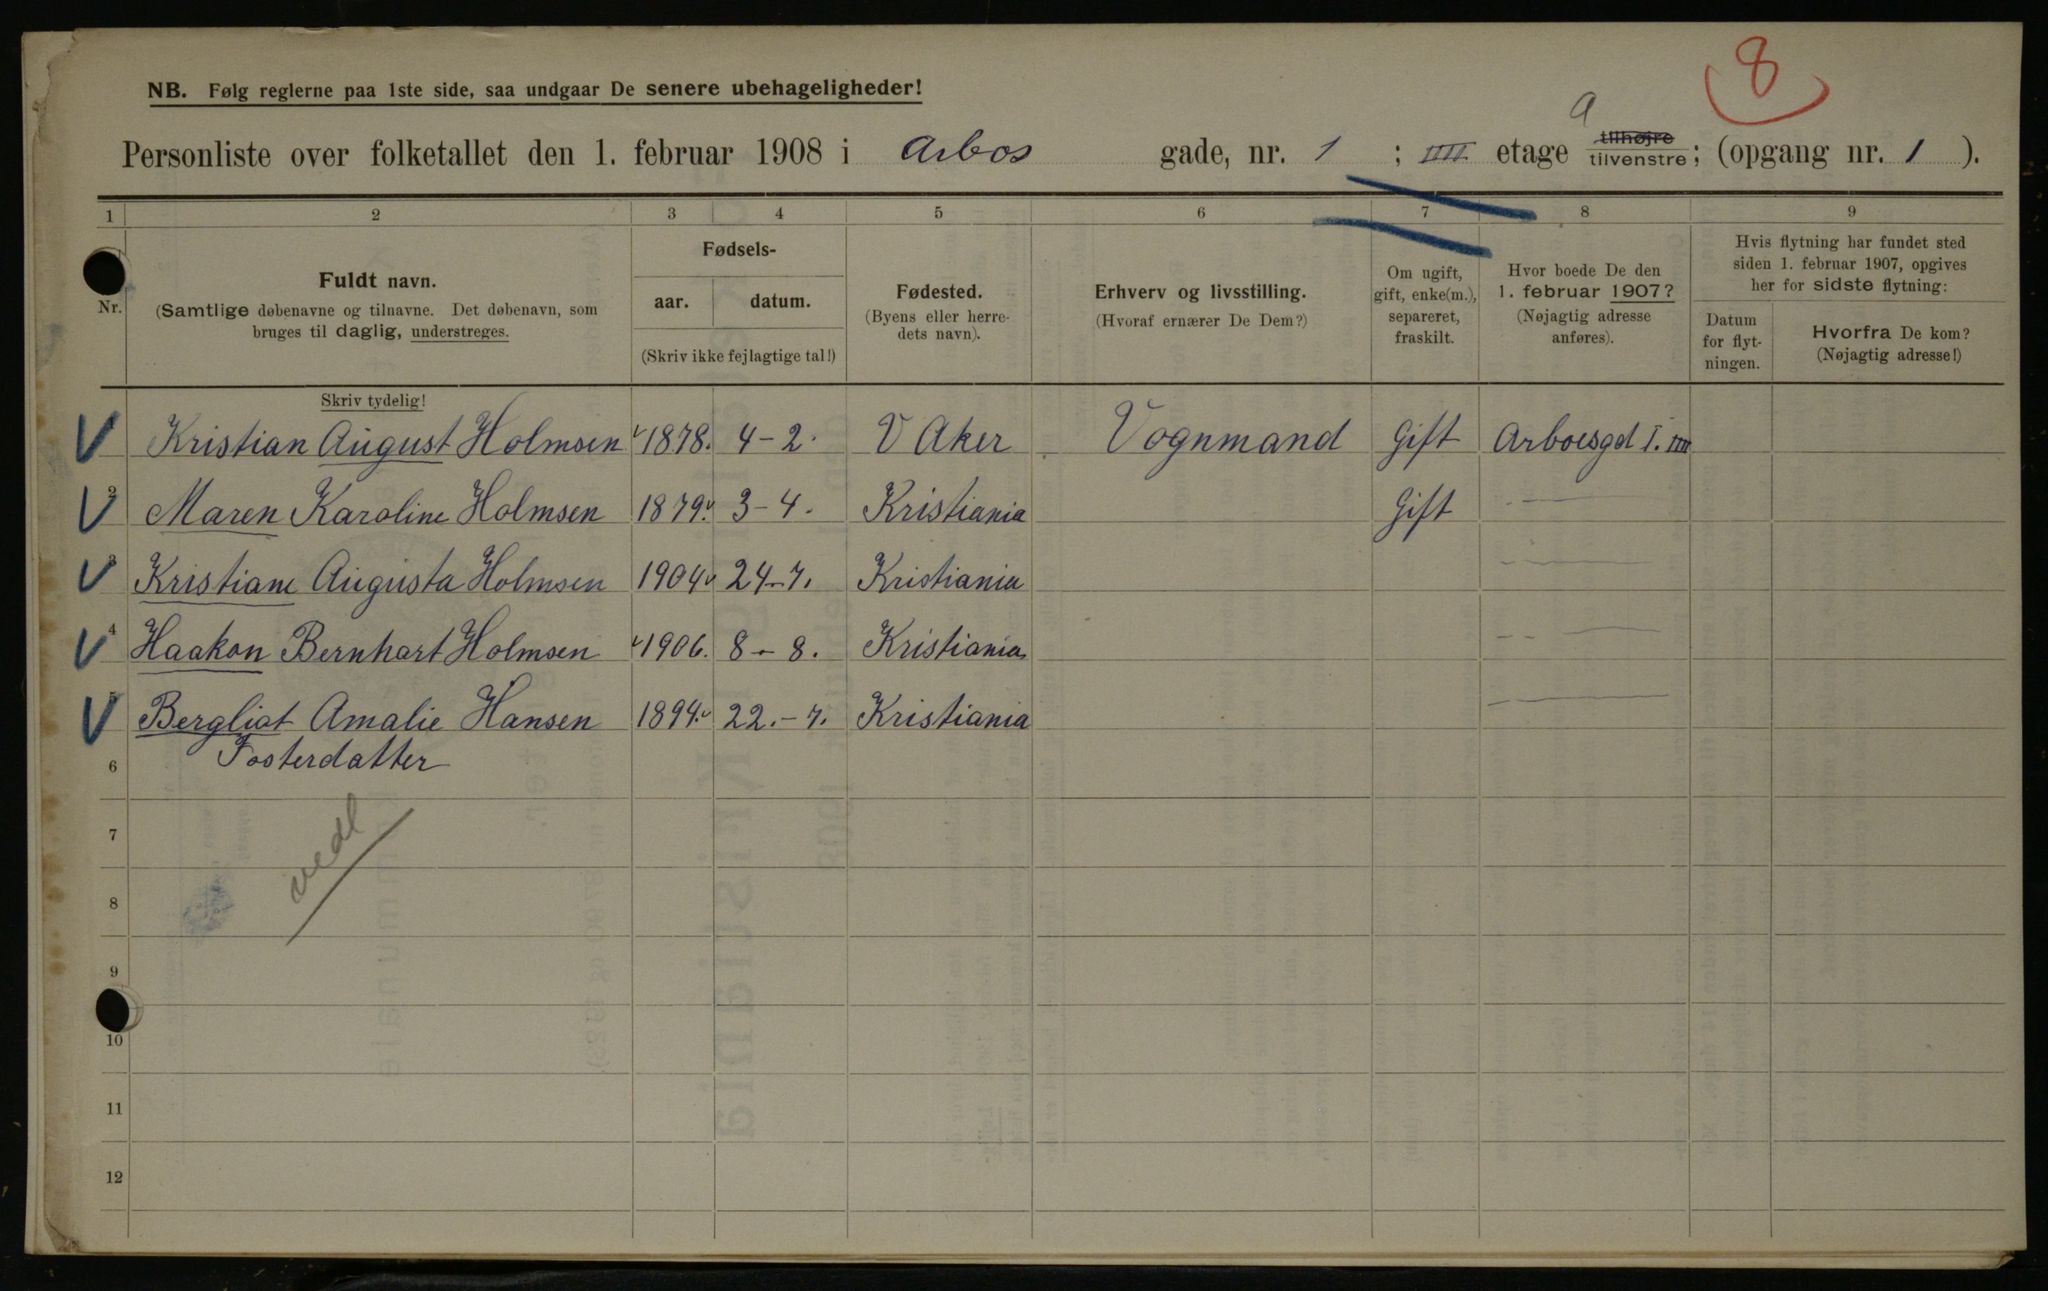 8
NB. Følg reglerne paa 1ste side, saa undgaar De senere ubehageligheder!
a
Personliste over folketallet den 1. februar 1908 i Arbos gade, nr. 1 ; IIII etage tilhøjre tilvenstre; (opgang nr. 1 ).
1 2 3 4 5 6 7 8 9
Nr. Fuldt navn. (Samtlige døbenavne og tilnavne. Det døbenavn, som bruges til daglig, understreges.
Fødsels- aar. datum. (Skriv ikke fejlagtige tal!)
Fødested. (Byens eller herredets navn).
Erhverv og livsstilling. (Hvoraf ernærer De Dem?)
Om ugift, gift, enke(m.), separeret, fraskilt.
Hvor boede De den 1. februar 1907? (Nøjagtig adresse anføres).
Hvis flytning har fundet sted siden 1. februar 1907, opgives her for sidste flytning:
Datum for flytningen.
Hvorfra De kom? (Nøjagtig adresse!)
Skriv tydelig!
Kristian August Holmsen 1878. 4-2. V Aker Vognmand Gift Arboesgd I. IIII
2 Maren Karoline Holmsen 1879. 3-4. Kristiania Gift - —
3 Kristiane Augusta Holmsen 1904 24-7. Kristiania - —
4 Haakon Bernhart Holmsen 1906. 8-8. Kristiania - - —
5 Bergliot Amalie Hansen 1894. 22.-7. Kristiania - —
6 Fosterdatter
7
8
9
10
11
12